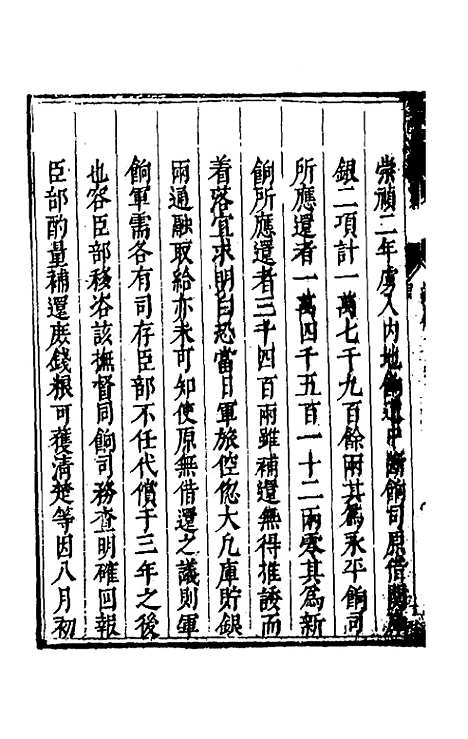 崇禎二年虜入内地餉道中斷餉司原借關庫
銀二項計一萬七千九百餘兩其爲永平餉司
所應還者一萬四千五百一十二兩零其爲新
餉所應還者三千四百兩雖補還無得推諉而
着落宜求明白恐當日軍旅倥偬大凡庫貯銀
兩通融取給亦未可知使原無借還之議則軍
餉軍需各有司存臣部不任代償于三年之後
也容臣部移咨該撫督同餉司務查明確回報
臣部酌量補還庶錢粮可獲清楚等因八月初